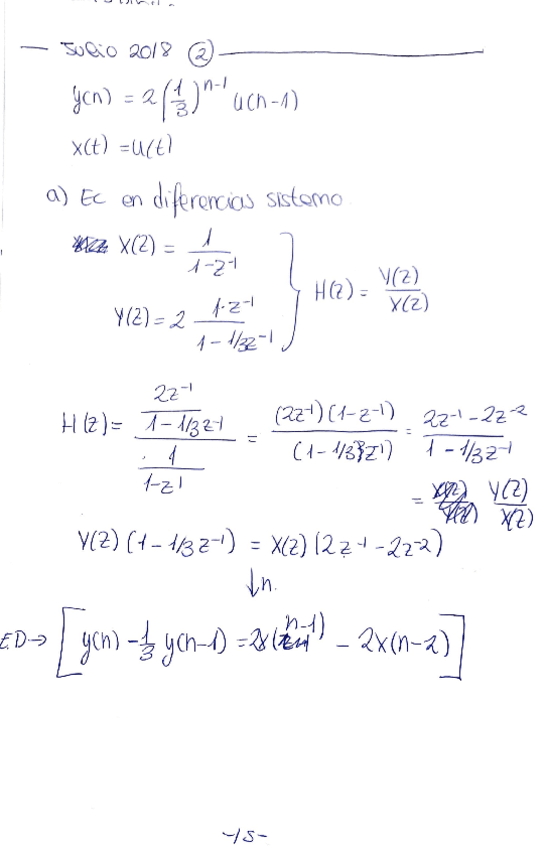 Julio 2018 ②
y(n) = 2(1/3)^n-1 u(n-1)
x(t) = u(t)
a) Ec en diferencias sistema
X(z) = 1/(1-z^-1)
Y(z) = 2 (1·z^-1)/(1-1/3z^-1)
H(z) = Y(z)/X(z)
H(z) = (2z^-1/(1-1/3z^-1))/(1/(1-z^1)) = (2z^-1)(1-z^-1)/(1-1/3z^-1) = (2z^-1-2z^-2)/(1-1/3z^-1)
= Y(z)/X(z)
Y(z)(1-1/3z^-1) = X(z)(2z^-1-2z^-2)
↓n.
E.D→ [y(n) - 1/3 y(n-1) = 2x(n-1) - 2x(n-2)]
-15-